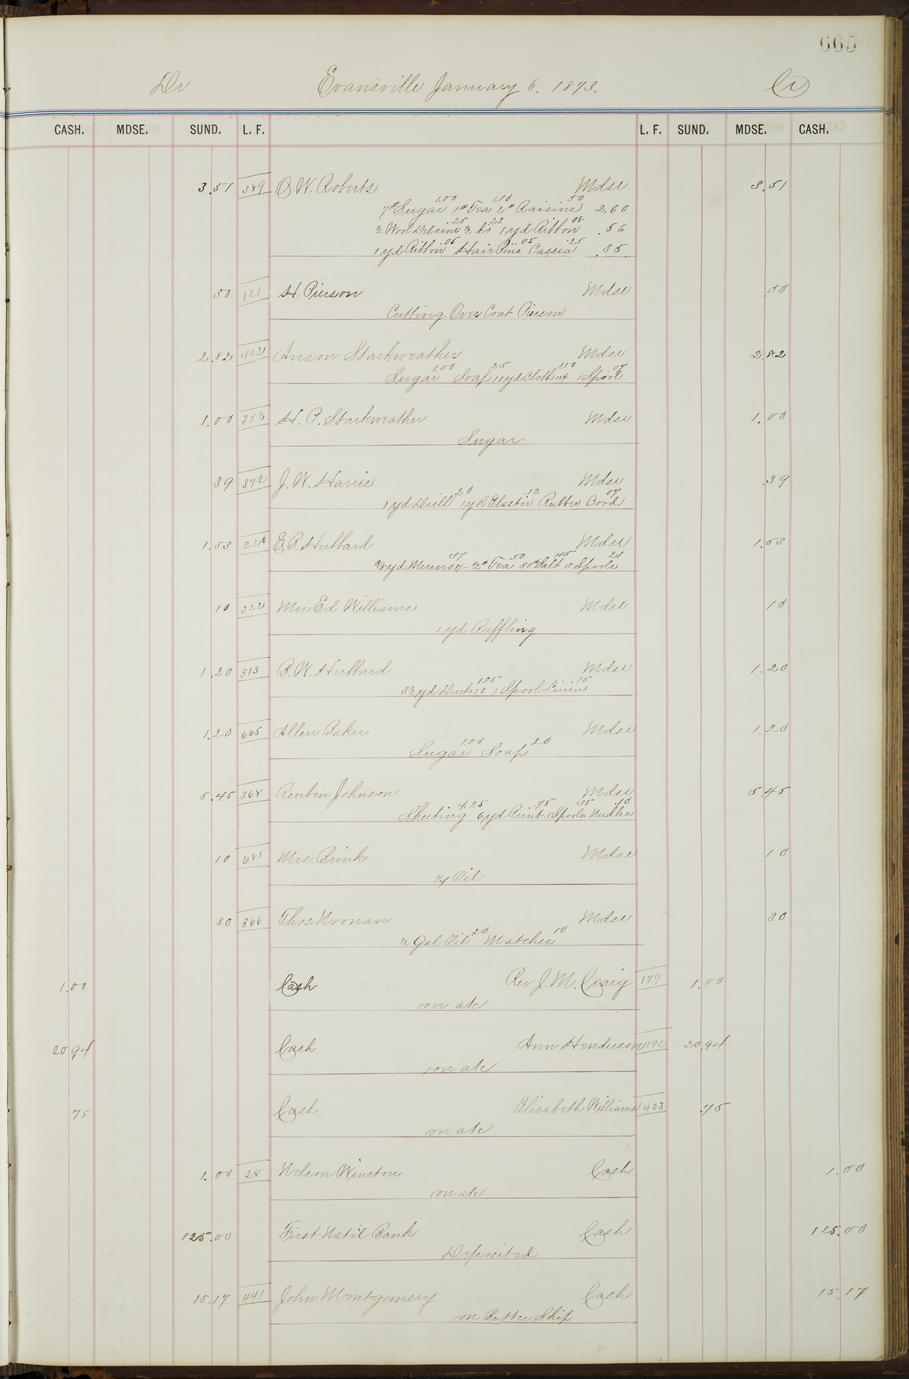 665
Dr Evansville January 6. 1873. Cr
CASH. MDSE. SUND. L. F. L. F. SUND. MDSE. CASH.
3.51 389 O W. Roberts Mdse 3.51
7# Sugar 1.00 1# Tea 1.10 2# Raisins 50 2.60
Wool Delaine 25 23 1 yd Ribbon 08 .56
1 yd Ribbon 05 Hair Pins 05 Cassia 25 .35
50 121 H. Pierson Mdse .50
Cutting Over Coat Pierson
2.82 402 Anson Starkweather Mdse 2.82
Sugar 1.00 Soap 25 10 yd Cloth 1.50 1 Spool 07
1.00 383 H. P. Starkweather Mdse 1.00
Sugar
39 372 J. W. Harris Mdse .39
1 yd Drill 20 1 yd Elastic 12 Rubber Cord 07
1.53 226 E. B. Hubbard Mdse 1.53
yd Merino 37 Tea 50 Salt 45 3 Spools 21
10 322 Mrs Ed Williams Mdse 10
1 yd Ruffling
1.20 313 R. W. Hubbard Mdse 1.20
yd 1.05 1 Spool Linen 15
1.20 665 Allen Baker Mdse 1.20
Sugar 1.00 Soap 20
5.45 368 Reuben Johnson Mdse 5.45
Sheeting 4.25 6 yd Print 75 5 Spools 35 Needles 10
10 685 Mrs Brink Mdse 10
Oil
30 366 Thos Noonan Mdse 30
½ Gal Oil 20 Matches 10
1.00 Cash Rev J. M. Craig 179 1.00
on a/c
20.94 Cash Ann Henderson 192 20.94
on a/c
75 Cash Elisabeth Williams 403 .75
on a/c
1.00 28 Nelson Winston Cash 1.00
on a/c
125.00 First Natil Bank Cash 125.00
Deposited
15.17 441 John Montgomery Cash 15.17
on Butter Ship